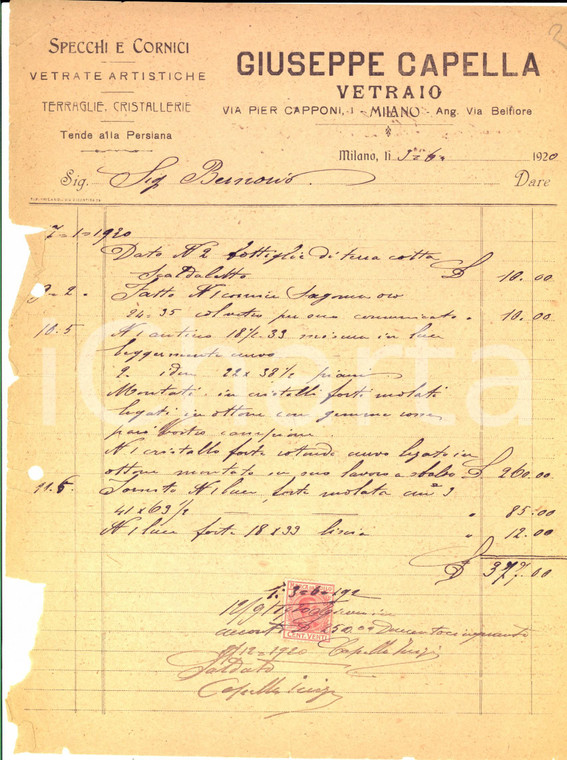 SPECCHI E CORNICI
VETRATE ARTISTICHE
TERRAGLIE, CRISTALLERIE
Tende alla Persiana
GIUSEPPE CAPELLA
VETRAIO
VIA PIER CAPPONI, 1 - MILANO - Ang. Via Belfiore
Milano, li 3=6= 1920
Sig. Sig Dare
7=1=1920
Dato N 2 bottiglie di terra cotta
Scaldaletto £ 10.00
3=2. Fatto N 1 cornice Sagoma oro
24=35 col vetro per suo " 10.00
10.5 N 1 antino 18½.33 misura in luce
leggermente curvo
2. idem 22x38½ piani
Montati in cristalli forti molati
legati in ottone con gemme rosse
N 1 cristallo forte rotondo curvo legato in
ottone montato in suo lavoro £ 260.00
11.5 Fornito N 1 luce forte molata
41x63½ " 85.00
N 1 luce forte 18x33 liscia " 12.00
£ 377.00
li 3=6=192
12/9
£ 250.00 Duecentocinquanta
12=1920 Capella Luigi
Saldato
Capella Luigi
CENT. VENTI
iCarta